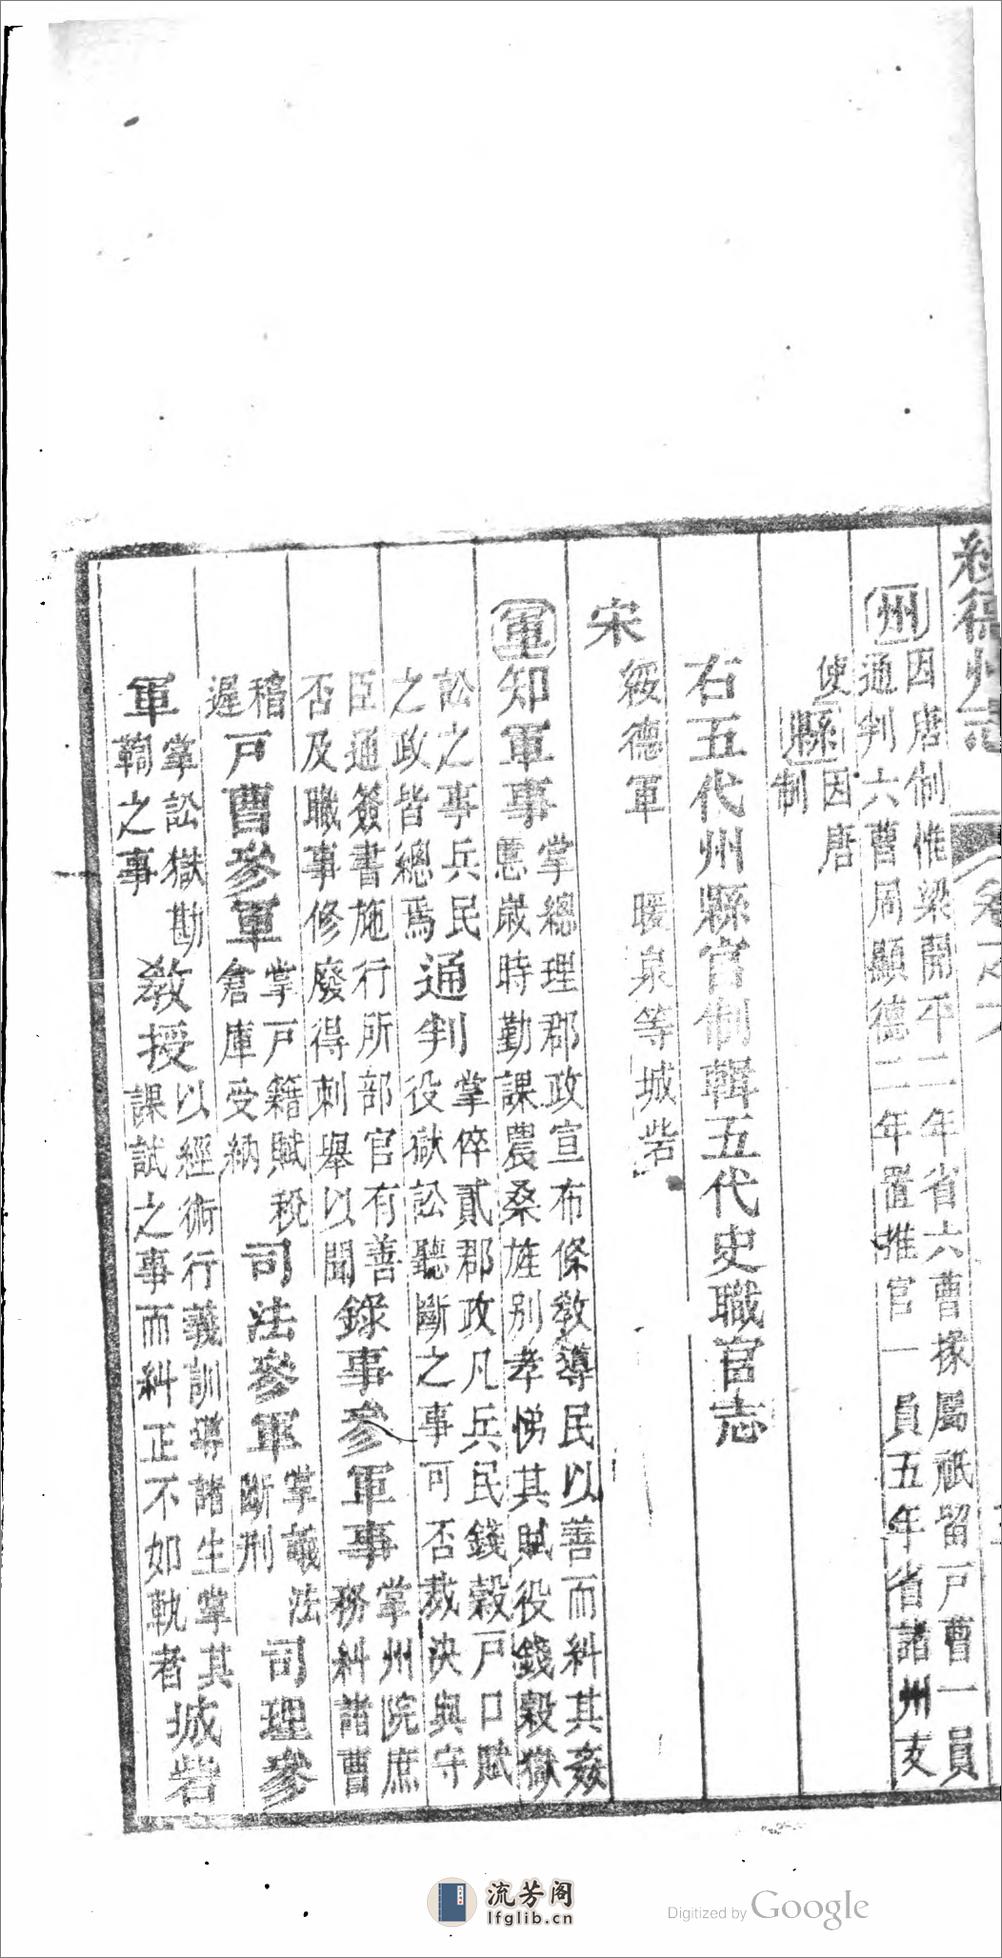 綏德州志
卷之六
州 因唐制惟梁開平二年省六曹掾屬祇留戸曹一員
通判六曹周顯德二年置推官一員五年省諸州支
使 縣 因唐
制
右五代州縣官制輯五代史職官志
宋
綏德軍 暖泉等城砦
軍 知軍事 掌總理郡政宣布條敎導民以善而糾其姦
慝歲時勤課農桑旌别孝悌其賦役錢穀獄
訟之事兵民
之政皆總焉 通判 掌倅貳郡政凡兵民錢穀戸口賦
役獄訟聽斷之事可否裁決與守
臣通簽書施行所部官有善
否及職事修廢得刺舉以聞 錄事參軍事 掌州院庶
務糾諸曹
稽
遲 戸曹參軍 掌戸籍賦稅
倉庫受納 司法參軍 掌議法
斷刑 司理參
軍 掌訟獄勘
鞫之事 敎授 以經術行義訓導諸生掌其
課試之事而糾正不如執者 城砦
流芳阁
lfglib.cn
Digitized by Google